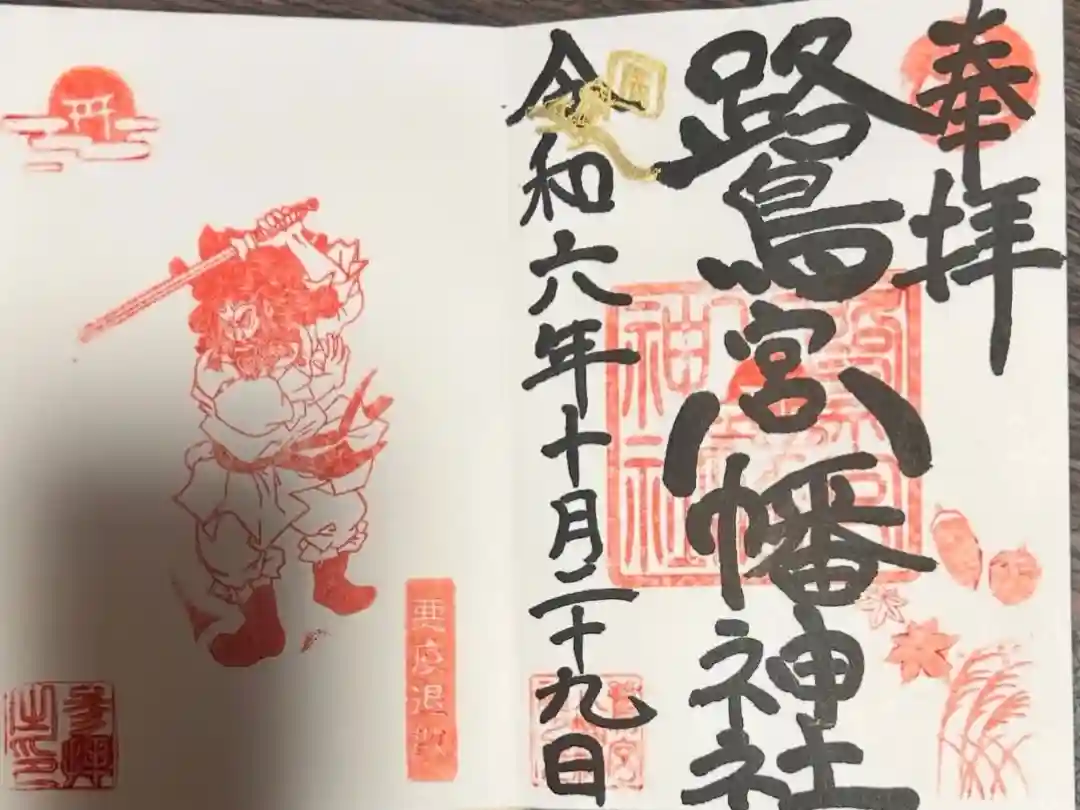 奉拝
鷺宮八幡神社
令和六年十月二十九日
神社
参拝之印